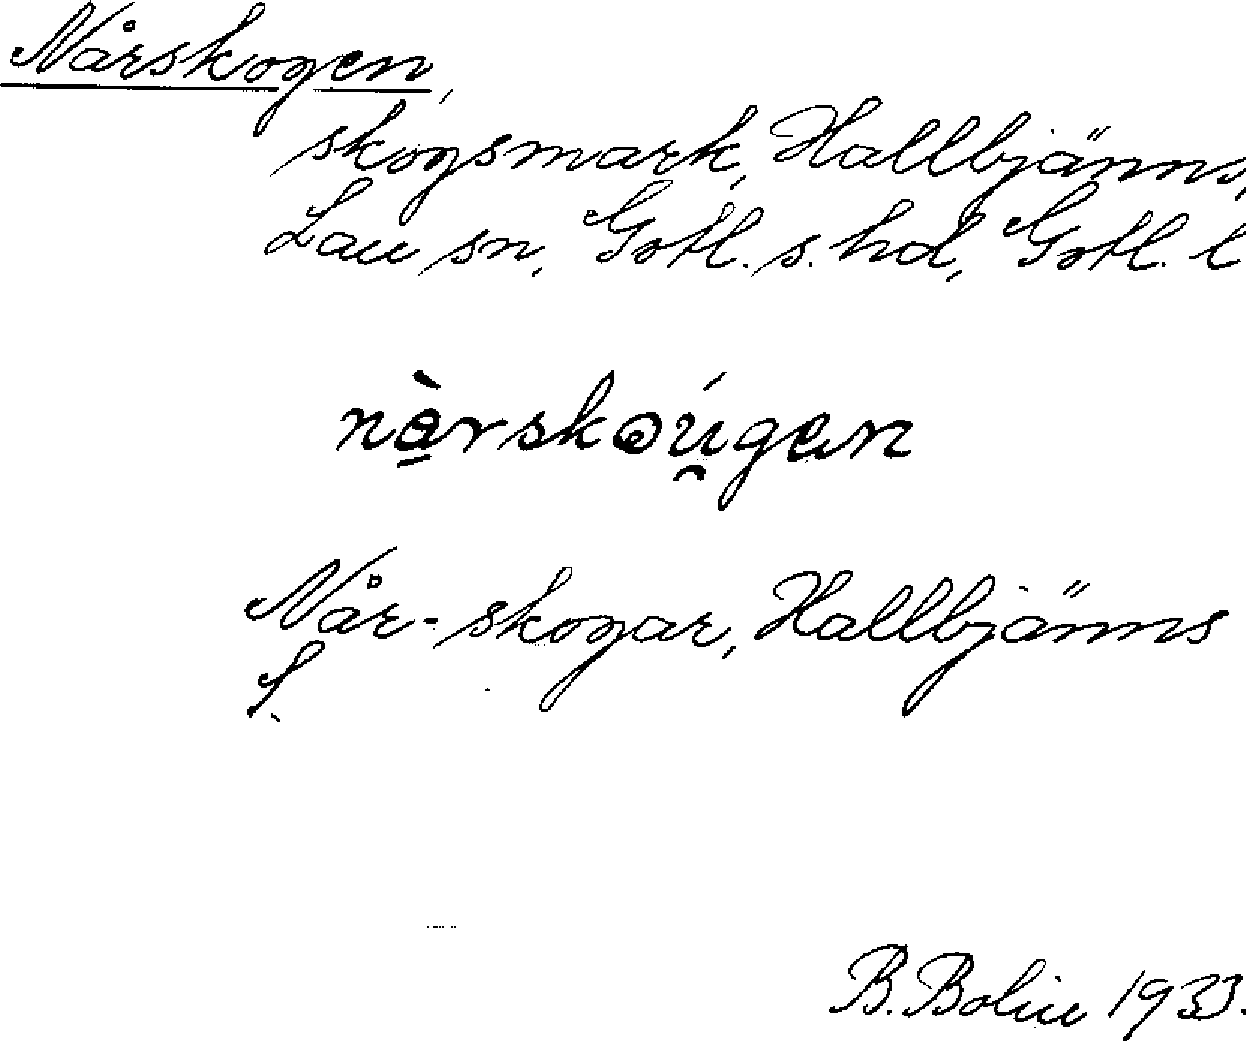 Nårskogen,
skogsmark, Hallbjänns,
Lau sn, Gotl. s. hd, Gotl. l
Når-skogar, Hallbjänns
B. Bolin 1933.